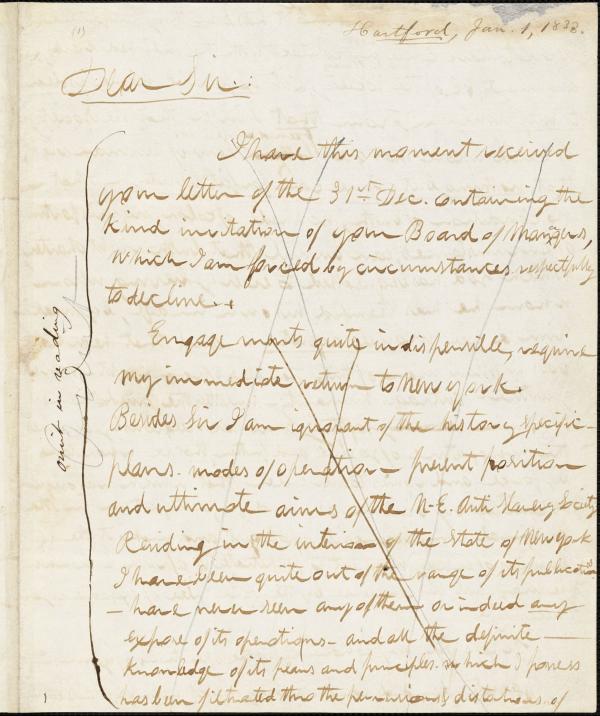 (1)
Hartford, Jan. 1, 1833.
Dear Sir.:
I have this moment received
your letter of the 31st Dec. containing the
kind invitation of your Board of Mangrs,
which I am forced by circumstances respectfully
to decline..
Engagements quite indispensible, require
my immediate return to New York.
Besides Sir I am ignorant of the history specific
plans. modes of operation – present position
and ultimate aims of the N-E. Anti Slavery Society
Residing in the interior of the State of New York
I have been quite out of the range of its publications
– have never seen any of them or indeed any
expose of its operations – and all the definite –
knowledge of its plans and principles. which I possess
has been filtrated thro the perversions & distortions of
omit in reading